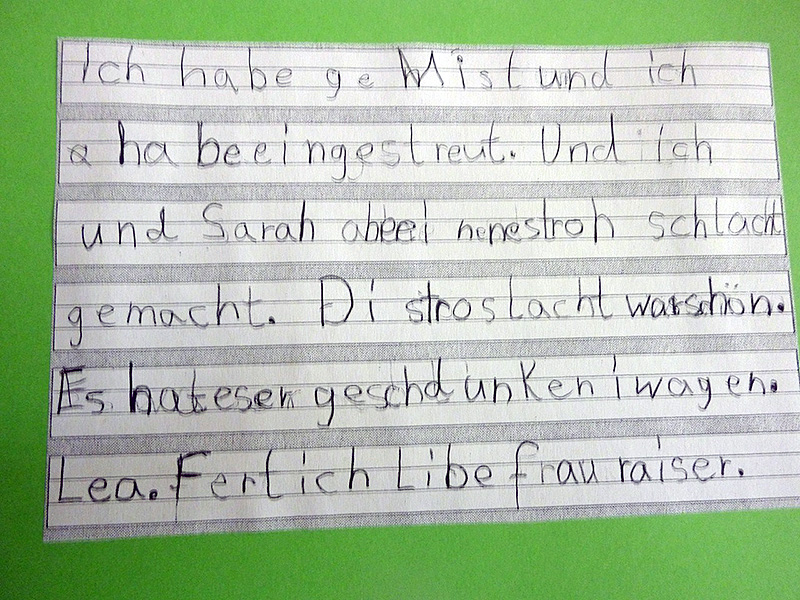 Ich habe ge Mist und ich
ha beeingestreut. Und ich
und Sarah abeel nenestroh schlacht
gemacht. Di stroslacht warschön.
Es hateser geschdunken iwagen.
Lea. Fertich Libe frau raiser.